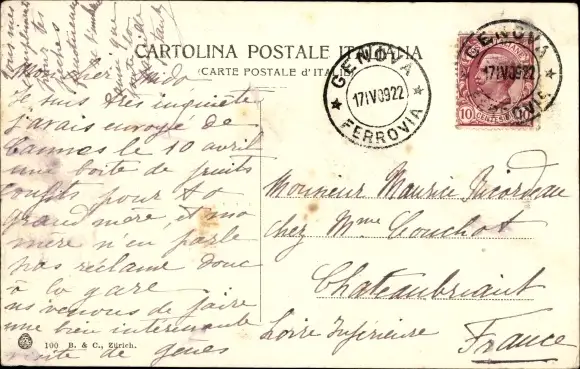 CARTOLINA POSTALE ITALIANA
(CARTE POSTALE d'ITALIE)
GENOVA
17IV0922
FERROVIA
GENOVA
17IV0922
FERROVIA
10 CENTES
Mon cher
Je suis très inquiète
j'avais envoyé de
Cannes le 10 avril
une boite de fruits
confits pour ta
grand mère, et ma
mère n'en parle
pas réclame donc
à la gare
ns venons de faire
une bien intéressante
visite de gênes
Monsieur Maurice Ricordeau
chez Mme Couchot
Chateaubriant
Loire Inférieure
France
100 B. & C., Zürich.